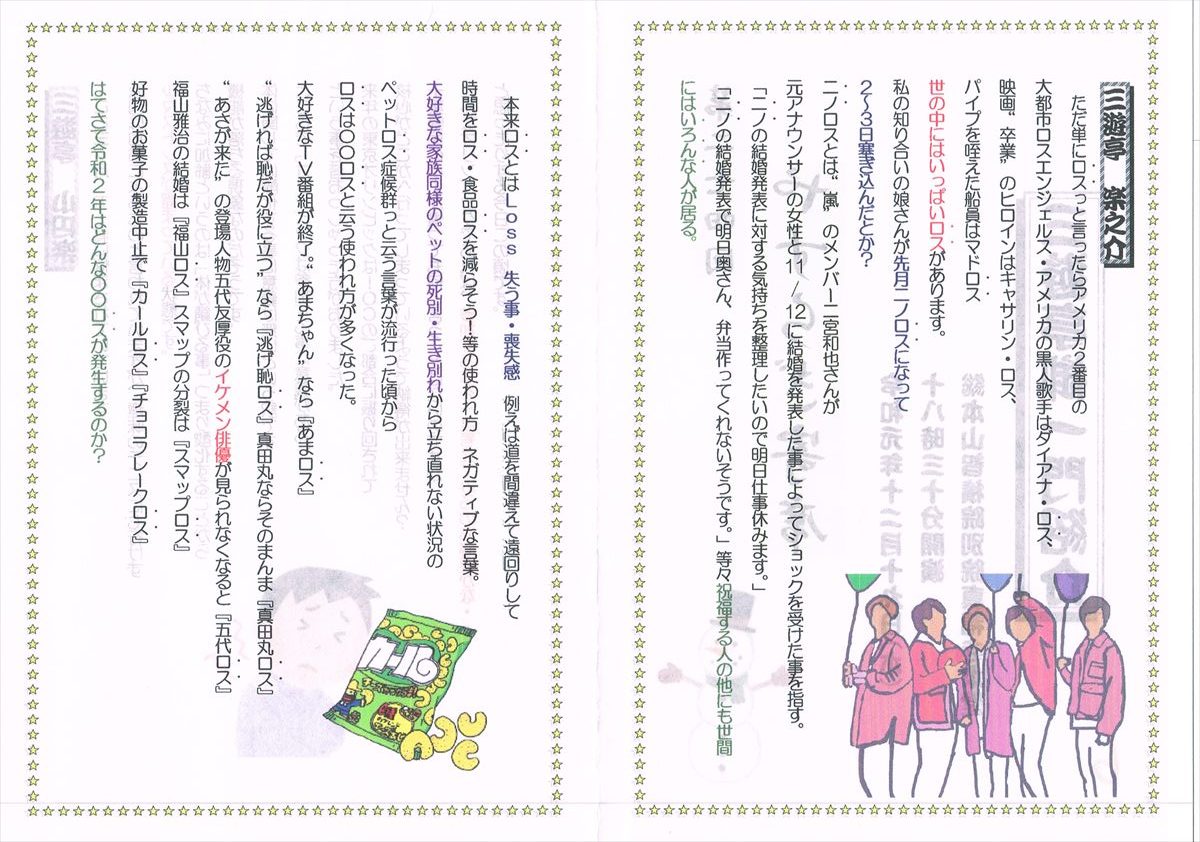 三遊亭　楽之介
ただ単にロスっと言ったらアメリカ２番目の
大都市ロスエンジェルス・アメリカの黒人歌手はダイアナ・ロス、
映画〝卒業〟のヒロインはキャサリン・ロス、
パイプを咥えた船員はマドロス
世の中にはいっぱいロスがあります。
私の知り合いの娘さんが先月ニノロスになって
２～３日塞ぎ込んだとか？
ニノロスとは〝嵐〟のメンバー二宮和也さんが
元アナウンサーの女性と11／12に結婚を発表した事によってショックを受けた事を指す。
「ニノの結婚発表に対する気持ちを整理したいので明日仕事休みます。」
「ニノの結婚発表で明日奥さん、弁当作ってくれないそうです。」等々祝福する人の他にも世間
にはいろんな人が居る。
本来ロスとはＬｏｓｓ　失う事・喪失感　例えば道を間違えて遠回りして
時間をロス・食品ロスを減らそう！等の使われ方　ネガティブな言葉。
大好きな家族同様のペットの死別・生き別れから立ち直れない状況の
ペットロス症候群っと云う言葉が流行った頃から
ロスは〇〇ロスと云う使われ方が多くなった。
大好きなＴＶ番組が終了。〝あまちゃん〟なら『あまロス』
〝逃げれば恥だが役に立つ〟なら『逃げ恥ロス』真田丸ならそのまんま『真田丸ロス』
〝あさが来た〟の登場人物五代友厚役のイケメン俳優が見られなくなると『五代ロス』
福山雅治の結婚は『福山ロス』スマップの分裂は『スマップロス』
好物のお菓子の製造中止で『カールロス』『チョコフレークロス』
はてさて令和２年はどんな〇〇ロスが発生するのか？
カール